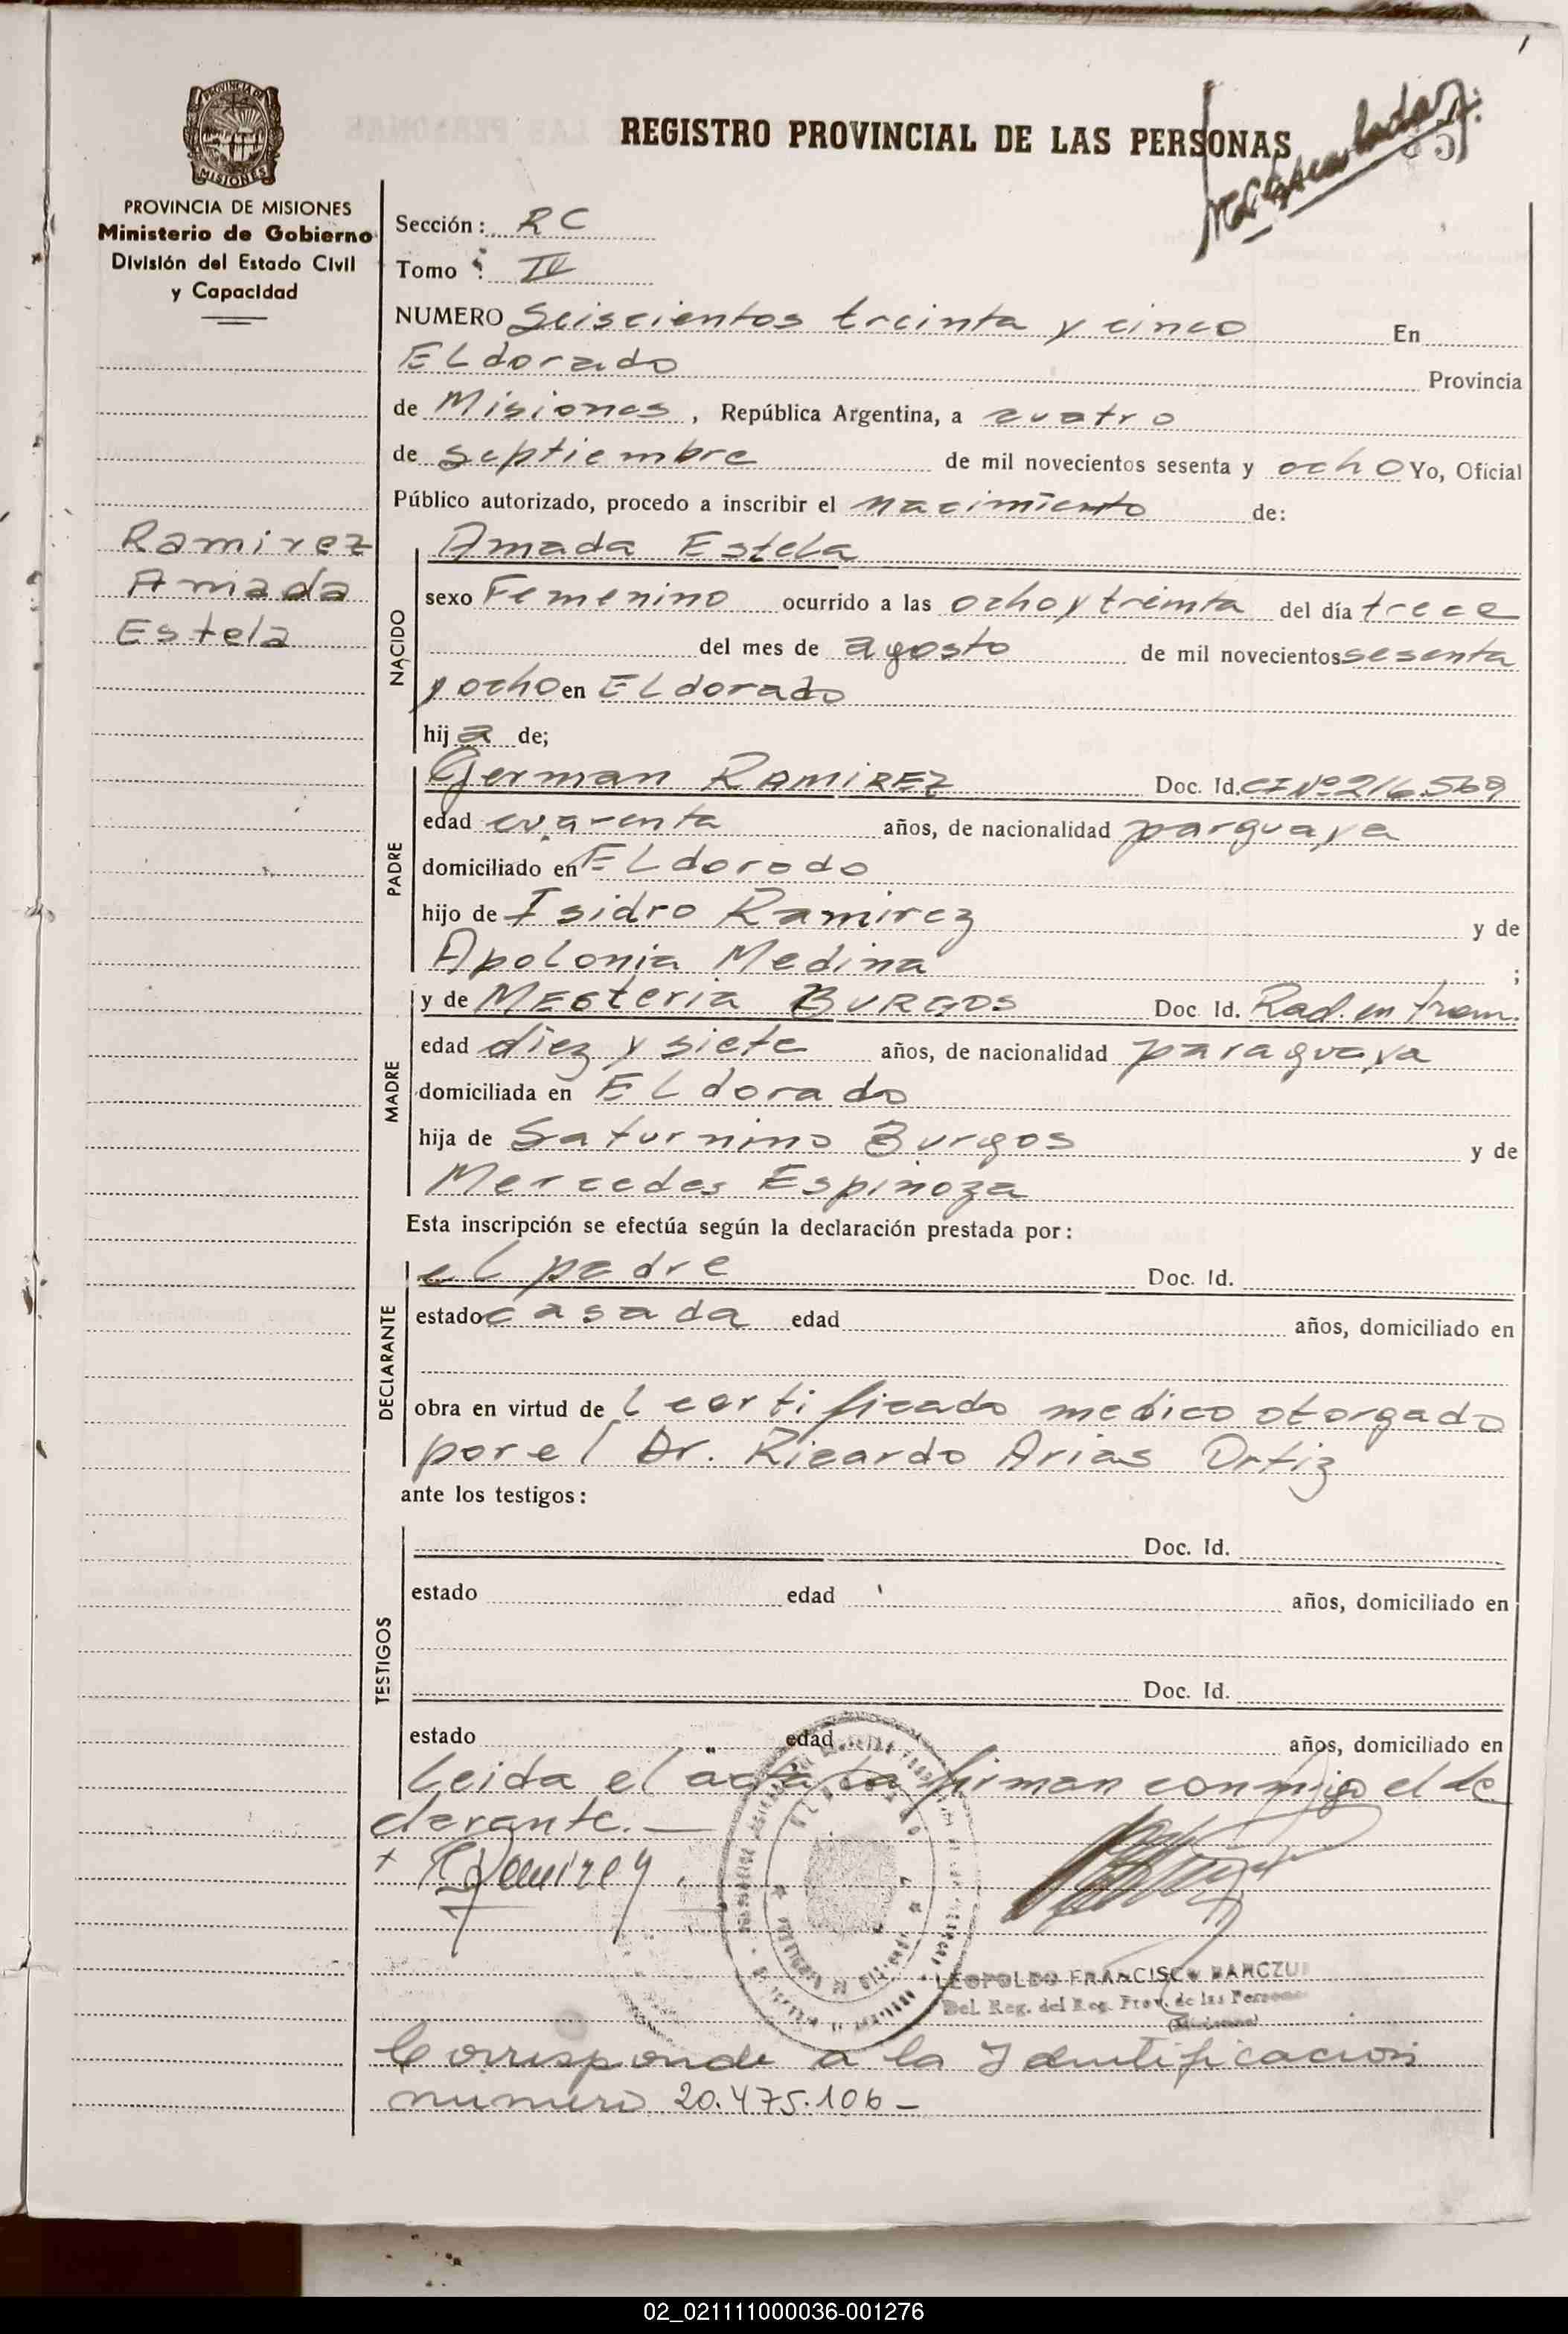 REGISTRO PROVINCIAL DE LAS PERSONAS
PROVINCIA DE
MISIONES
PROVINCIA DE MISIONES
Ministerio de Gobierno
División del Estado Civil
y Capacidad
Sección: RC
Tomo : IV
NUMERO Seiscientos treinta y cinco En
ELdorado Provincia
de Misiones, República Argentina, a cuatro
de septiembre de mil novecientos sesenta y ocho Yo, Oficial
Público autorizado, procedo a inscribir el nacimiento de:
Ramirez
Amada
Estela
NACIDO
Amada Estela
sexo Femenino ocurrido a las ocho y treinta del día trece
del mes de agosto de mil novecientos sesenta
y ocho en ELdorado
hija de;
PADRE
German RAMIREZ Doc. Id. CI Nº 216.569
edad cuarenta años, de nacionalidad parguaya
domiciliado en ELdorado
hijo de Isidro Ramirez y de
Apolonia Medina ;
MADRE
y de MEsteria BURGOS Doc. Id. Rad. en tram.
edad diez y siete años, de nacionalidad paraguaya
domiciliada en ELdorado
hija de Saturnino Burgos y de
Mercedes Espinoza
Esta inscripción se efectúa según la declaración prestada por:
DECLARANTE
el padre Doc. Id.
estado casada edad años, domiciliado en
obra en virtud de l certificado medico otorgado
por el Dr. Ricardo Arias Ortiz
ante los testigos:
TESTIGOS
Doc. Id.
estado edad años, domiciliado en
Doc. Id.
estado edad años, domiciliado en
Leida el acta la firman conmigo el de
clarante.—
x Ramirez
LEOPOLDO FRANCISCO
Del. Reg. del Reg. Prov. de las Personas
(Misiones)
Corresponde a la Identificacion
numero 20.475.106 –
02_021111000036-001276